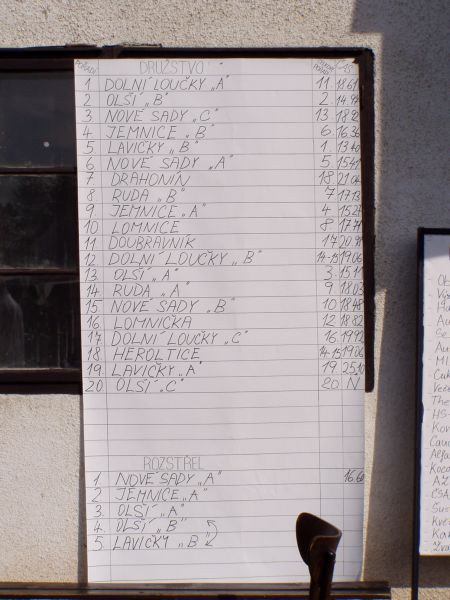 POŘADÍ DRUŽSTVO ČAS
1 DOLNÍ LOUČKY „A" 11. 18.61
2 OLŠÍ „B" 2. 14.97
3 NOVÉ SADY „C" 13. 18.92
4 JEMNICE „B" 6. 16.36
5 LAVIČKY „B" 1. 13.40
6 NOVÉ SADY „A" 5. 15.41
7 DRAHONÍN 18 21.04
8 RUDA „B" 7 17.13
9 JEMNICE „A" 4 15.27
10 LOMNICE 8 17.71
11 DOUBRAVNÍK 17 20.91
12 DOLNÍ LOUČKY „B" 14-15 19.06
13 OLŠÍ „A" 3. 15.11
14 RUDA „A" 9 18.03
15 NOVÉ SADY „B" 10 18.48
16 LOMNIČKA 12 18.82
17 DOLNÍ LOUČKY „C" 16 19.92
18 HEROLTICE 14-15 19.06
19 LAVIČKY „A" 19 25.10
20 OLŠÍ „C" 20 N
ROZSTŘEL
1. NOVÉ SADY „A" 16.60
2 JEMNICE „A"
3 OLŠÍ „A"
4 OLŠÍ „B"
5. LAVIČKY „B"